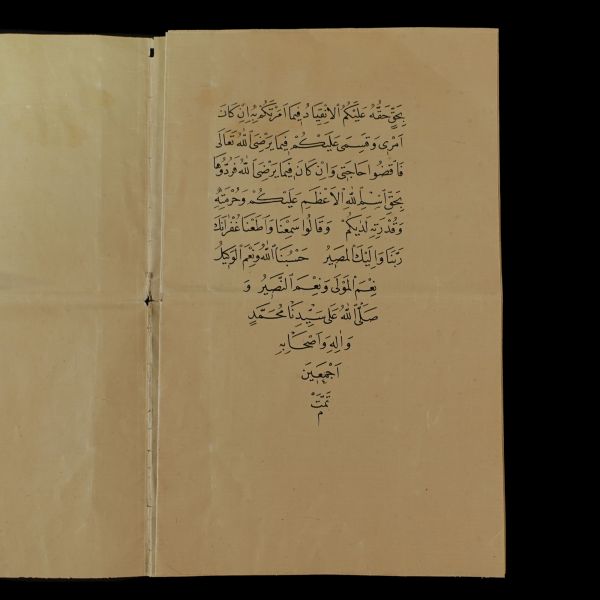 بِحَقٍّ حَقُّهُ عَلَيْكُمُ الْاِنْقِيَادُ فِيمَا اَمَرْتُكُمْ بِهِ اِنْ كَانَ
اَمْرِى وَقَسَمِى عَلَيْكُمْ فِيمَا يَرْضَى اللّٰهُ تَعَالَى
فَاقْضُوا حَاجَتِى وَاِنْ كَانَ فِيمَا يَرْضَى اللّٰهُ فَرُدُّوهَا
بِحَقِّ اِسْمِ اللّٰهِ الْاَعْظَمِ عَلَيْكُمْ وَحُرْمَتِهِ
وَقُدْرَتِهِ لَدَيْكُمْ وَقَالُوا سَمِعْنَا وَاَطَعْنَا غُفْرَانَكَ
رَبَّنَا وَاِلَيْكَ الْمَصِيرُ حَسْبُنَا اللّٰهُ وَنِعْمَ الْوَكِيلُ
نِعْمَ الْمَوْلَى وَنِعْمَ النَّصِيرُ وَ
صَلَّى اللّٰهُ عَلَى سَيِّدِنَا مُحَمَّدٍ
وَاٰلِهِ وَاَصْحَابِهِ
اَجْمَعِينَ
تَمَّتْ
م